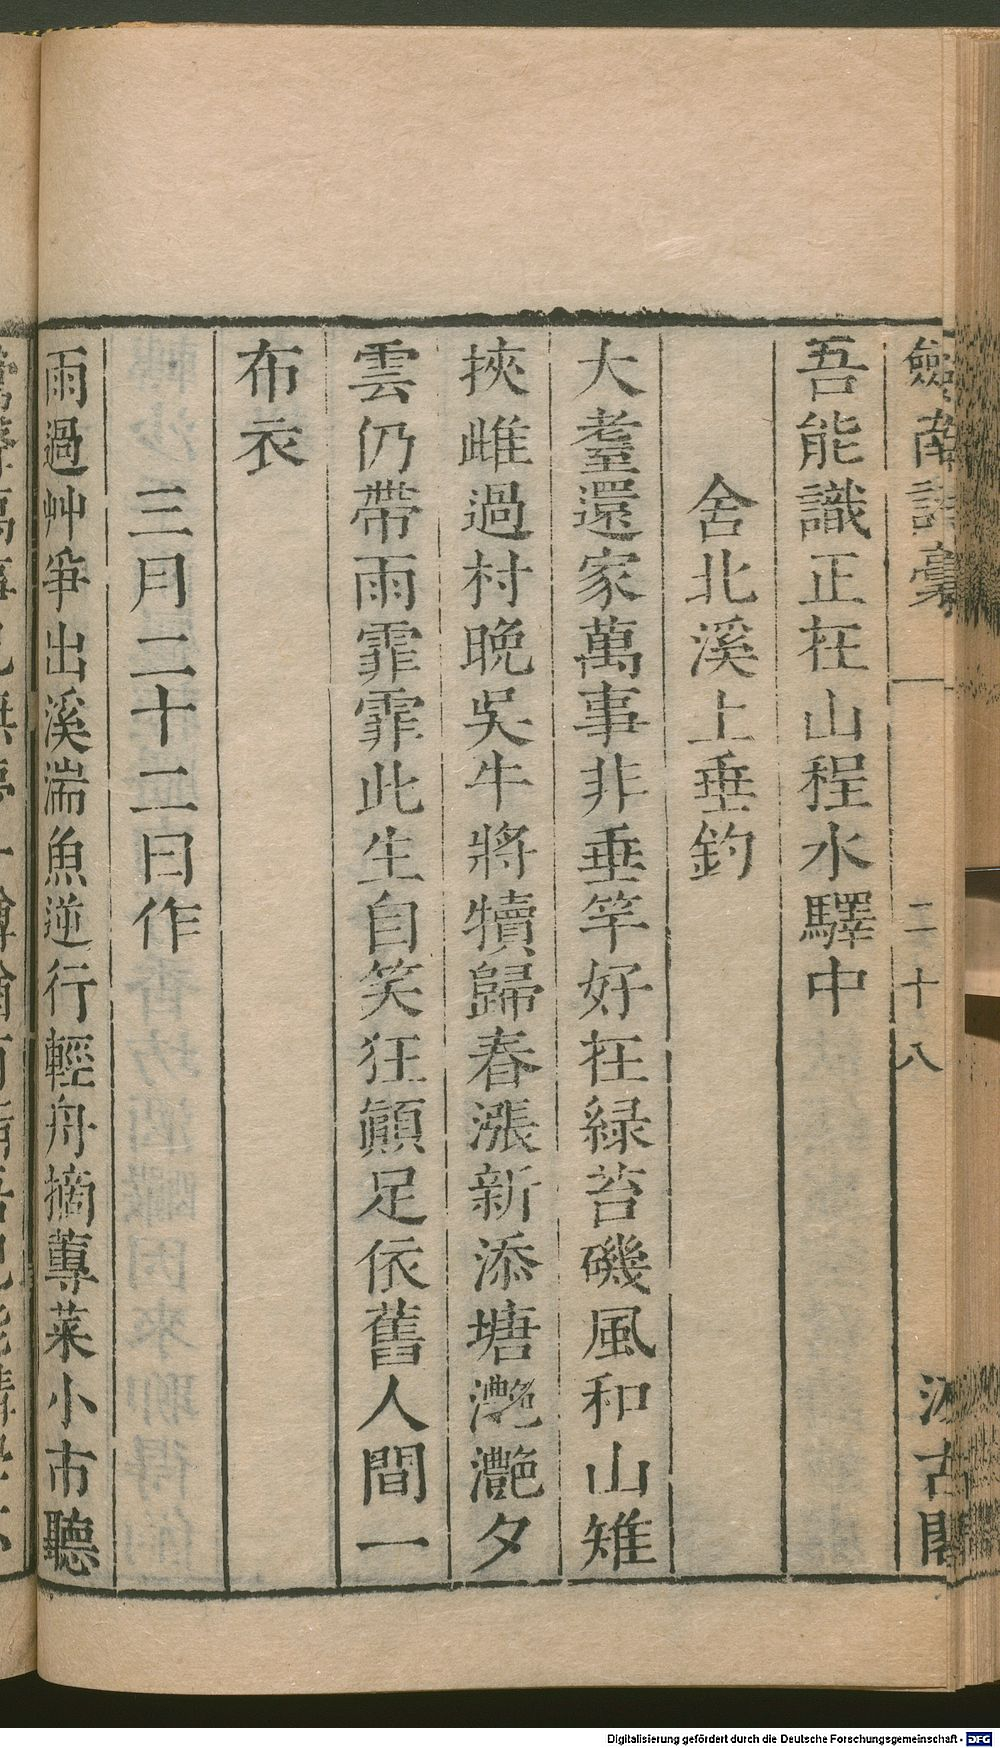 劍南詩稾 二十八 汲古閣
吾能識正在山程水驛中
舍北溪上垂釣
大耋還家萬事非垂竿好在綠苔磯風和山雉
挾雌過村晚吳牛將犢歸春漲新添塘灩灩夕
雲仍帶雨霏霏此生自笑狂顚足依舊人間一
布衣
三月二十二日作
雨過艸爭出溪湍魚逆行輕舟摘蓴菜小市聽
Digitalisierung gefördert durch die Deutsche Forschungsgemeinschaft - DFG